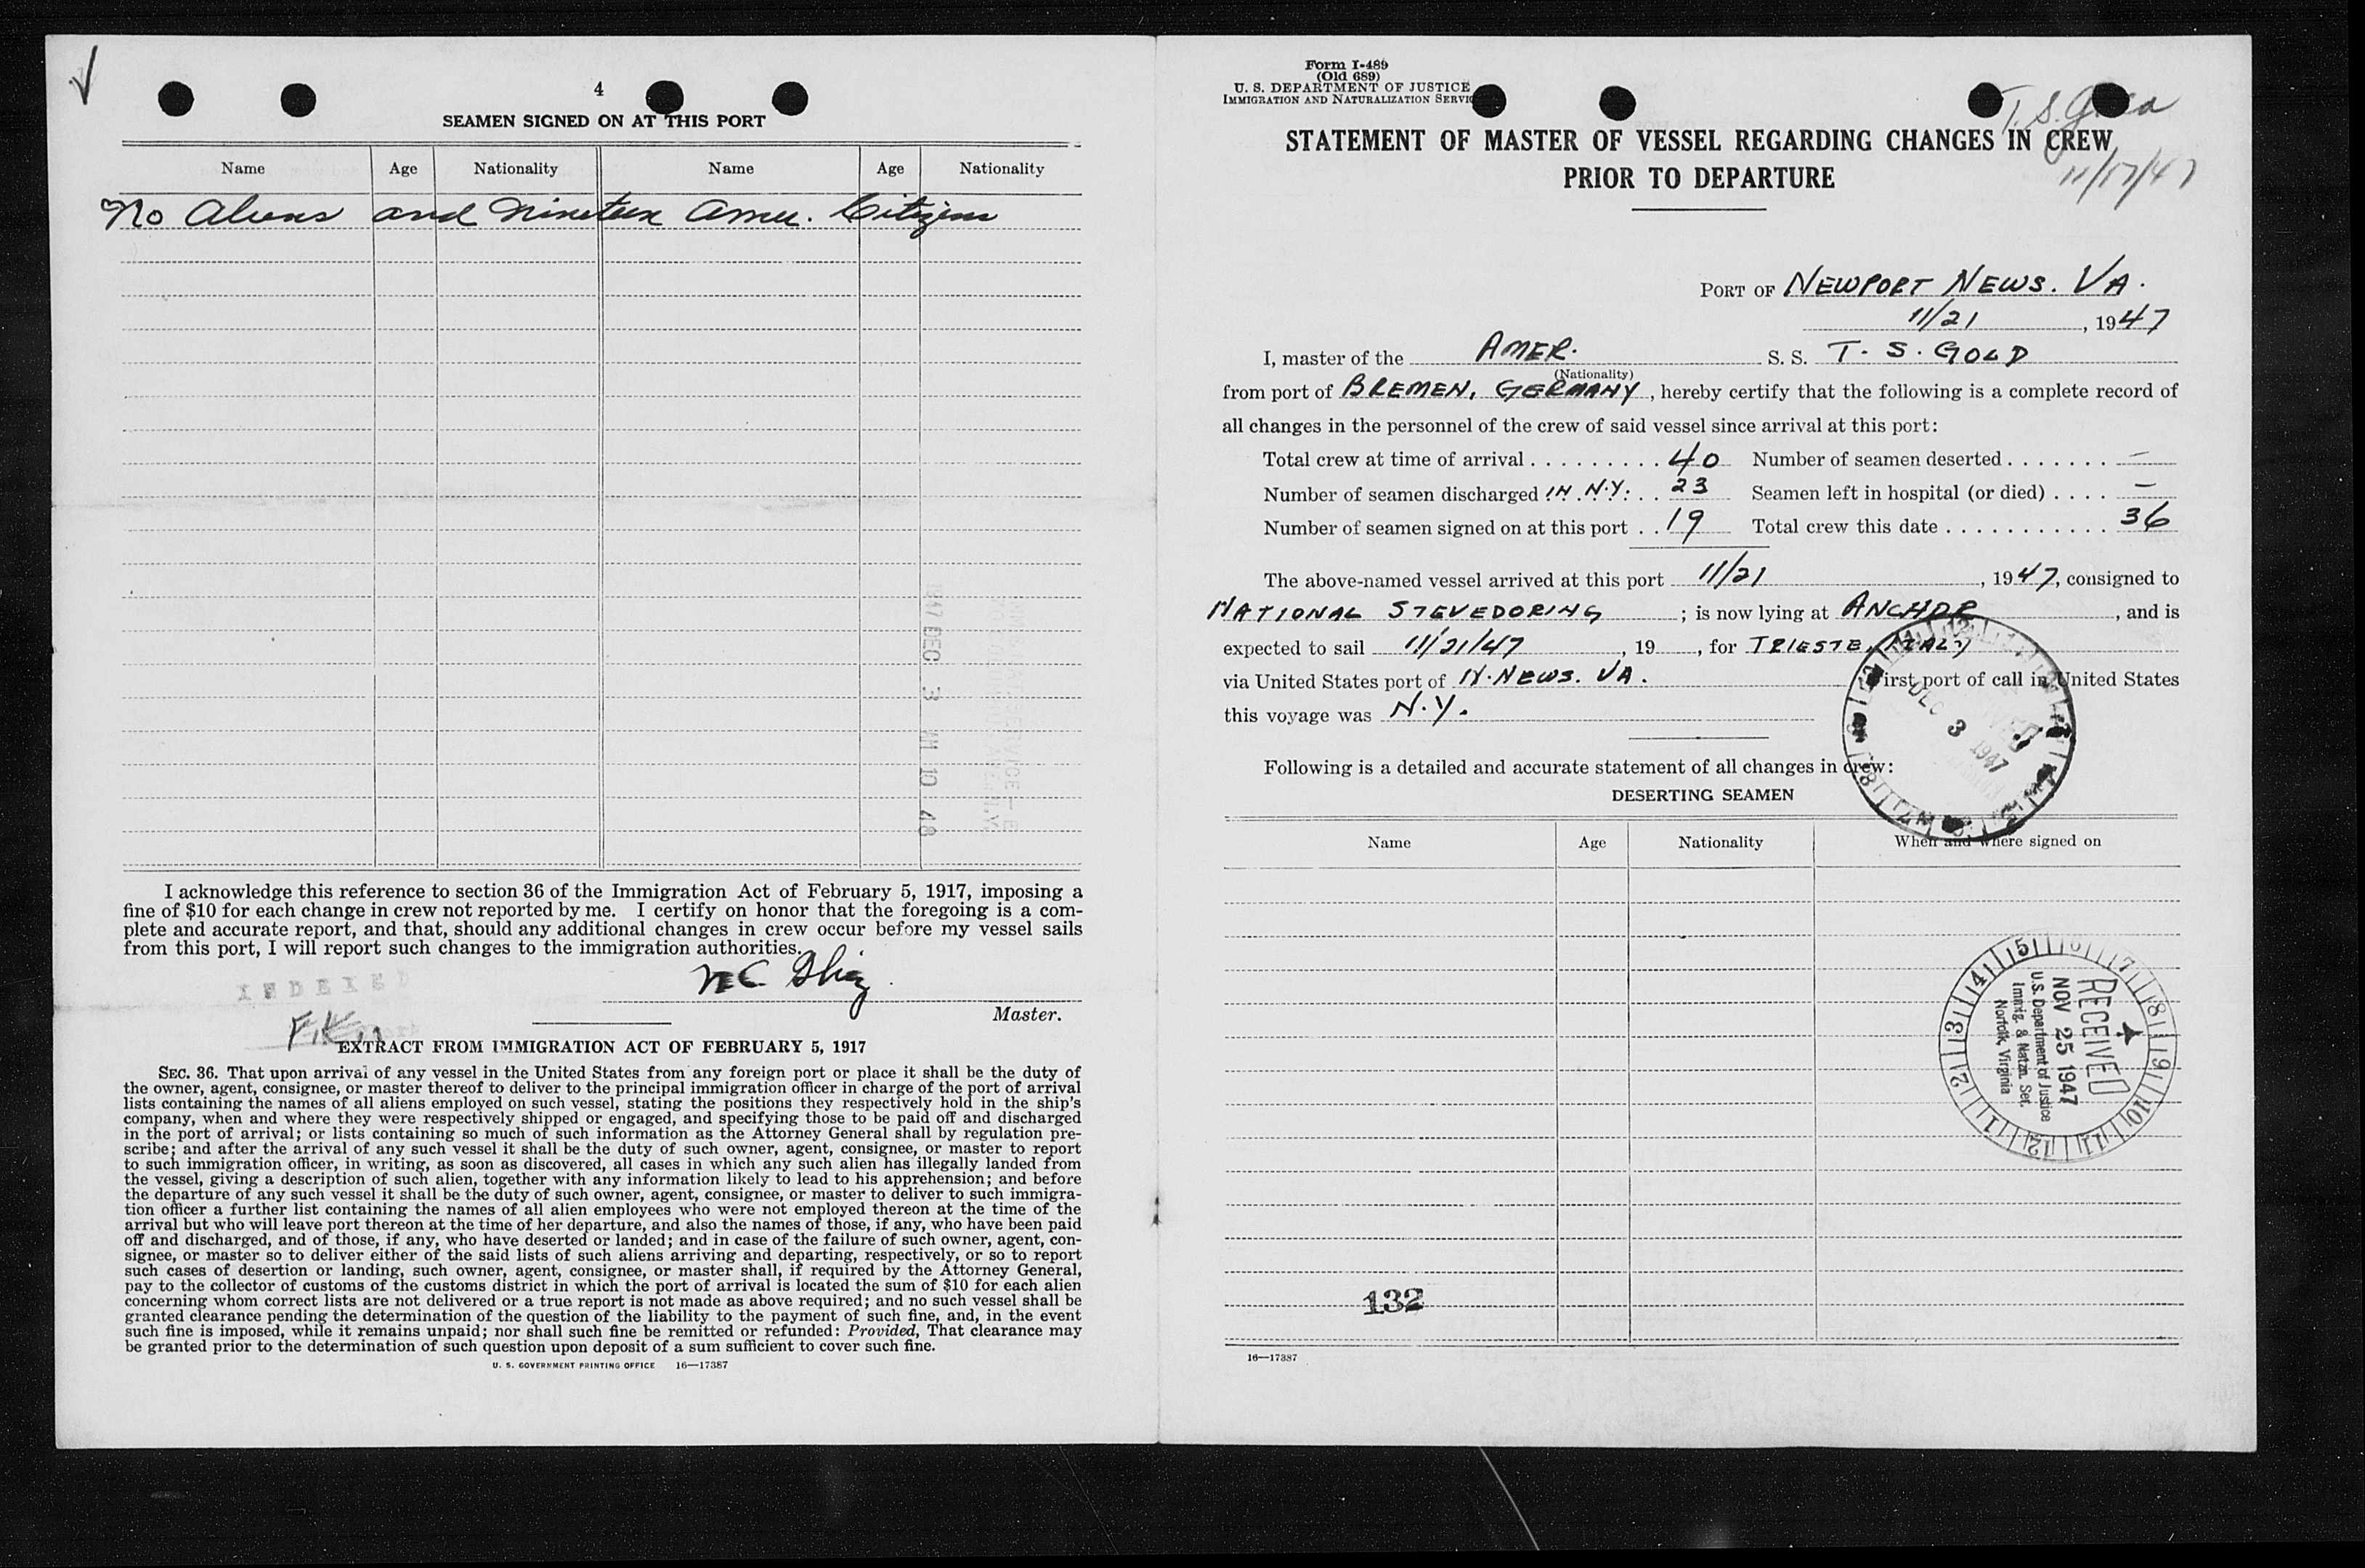 4
SEAMEN SIGNED ON AT THIS PORT
Name Age Nationality Name Age Nationality
No Aliens and Nineteen Amer. Citizens
1947 DEC 3 AM 10 48
I acknowledge this reference to section 36 of the Immigration Act of February 5, 1917, imposing a
fine of $10 for each change in crew not reported by me. I certify on honor that the foregoing is a com-
plete and accurate report, and that, should any additional changes in crew occur before my vessel sails
from this port, I will report such changes to the immigration authorities.
Master.
INDEXED
F.K.
EXTRACT FROM IMMIGRATION ACT OF FEBRUARY 5, 1917
SEC. 36. That upon arrival of any vessel in the United States from any foreign port or place it shall be the duty of
the owner, agent, consignee, or master thereof to deliver to the principal immigration officer in charge of the port of arrival
lists containing the names of all aliens employed on such vessel, stating the positions they respectively hold in the ship's
company, when and where they were respectively shipped or engaged, and specifying those to be paid off and discharged
in the port of arrival; or lists containing so much of such information as the Attorney General shall by regulation pre-
scribe; and after the arrival of any such vessel it shall be the duty of such owner, agent, consignee, or master to report
to such immigration officer, in writing, as soon as discovered, all cases in which any such alien has illegally landed from
the vessel, giving a description of such alien, together with any information likely to lead to his apprehension; and before
the departure of any such vessel it shall be the duty of such owner, agent, consignee, or master to deliver to such immigra-
tion officer a further list containing the names of all alien employees who were not employed thereon at the time of the
arrival but who will leave port thereon at the time of her departure, and also the names of those, if any, who have been paid
off and discharged, and of those, if any, who have deserted or landed; and in case of the failure of such owner, agent, con-
signee, or master so to deliver either of the said lists of such aliens arriving and departing, respectively, or so to report
such cases of desertion or landing, such owner, agent, consignee, or master shall, if required by the Attorney General,
pay to the collector of customs of the customs district in which the port of arrival is located the sum of $10 for each alien
concerning whom correct lists are not delivered or a true report is not made as above required; and no such vessel shall be
granted clearance pending the determination of the question of the liability to the payment of such fine, and, in the event
such fine is imposed, while it remains unpaid; nor shall such fine be remitted or refunded: Provided, That clearance may
be granted prior to the determination of such question upon deposit of a sum sufficient to cover such fine.
U. S. GOVERNMENT PRINTING OFFICE 16—17387
Form I-489
(Old 689)
U. S. DEPARTMENT OF JUSTICE
IMMIGRATION AND NATURALIZATION SERVICE
T. S. Gold
11/17/47
STATEMENT OF MASTER OF VESSEL REGARDING CHANGES IN CREW
PRIOR TO DEPARTURE
PORT OF NEWPORT NEWS. VA.
11/21, 1947
I, master of the AMER. S. S. T. S. GOLD
(Nationality)
from port of BREMEN, GERMANY, hereby certify that the following is a complete record of
all changes in the personnel of the crew of said vessel since arrival at this port:
Total crew at time of arrival . . . . . . . . . 40 Number of seamen deserted . . . . . . . —
Number of seamen discharged IN N.Y. . . 23 Seamen left in hospital (or died) . . . . —
Number of seamen signed on at this port . . 19 Total crew this date . . . . . . . . . . . 36
The above-named vessel arrived at this port 11/21, 1947, consigned to
NATIONAL STEVEDORING; is now lying at ANCHOR, and is
expected to sail 11/21/47, 19, for TRIESTE, ITALY
via United States port of N. NEWS. VA. First port of call in United States
this voyage was N.Y.
DEC 3 1947
Following is a detailed and accurate statement of all changes in crew:
DESERTING SEAMEN
Name Age Nationality When and where signed on
RECEIVED
NOV 25 1947
U.S. Department of Justice
Immig. & Natzn. Ser.
Norfolk, Virginia
132
16—17387